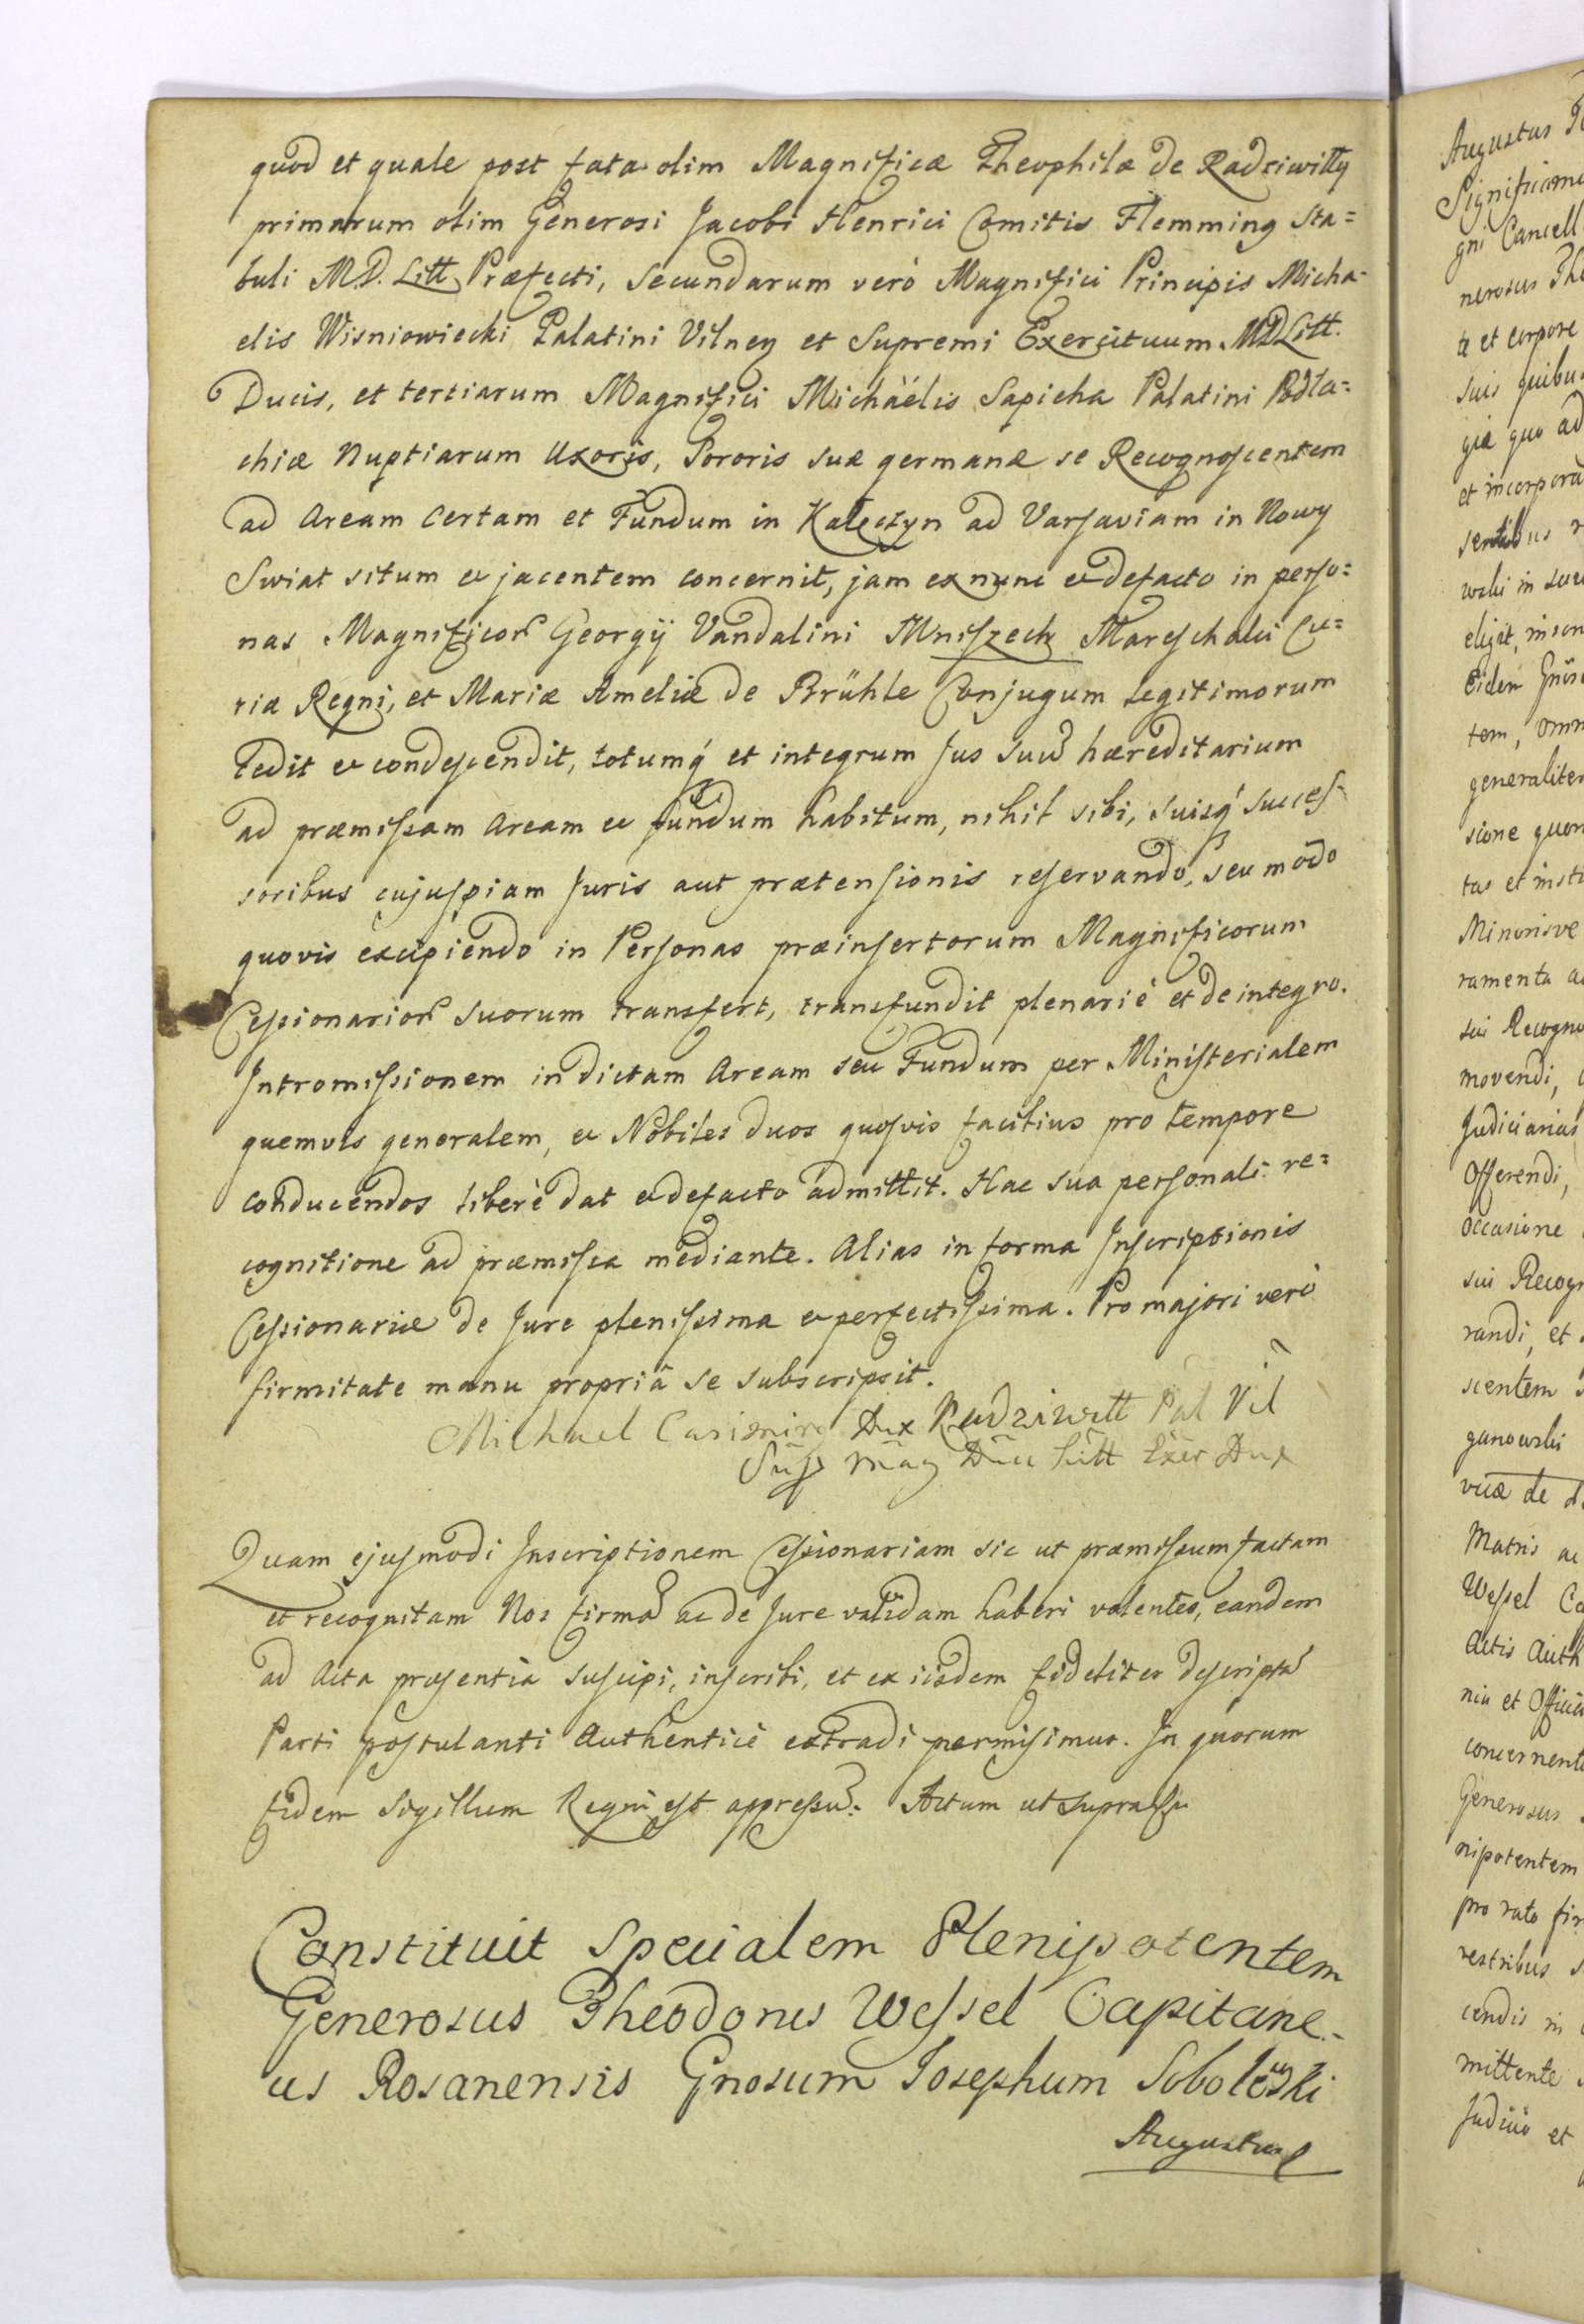 quod et quale post fata olim Magnificæ Theophilæ de Radziwiłły
primarum olim Generosi Jacobi Henrici Comitis Flemming Sta=
buli M.D. Litt. Præfecti, Secundarum verò Magnifici Principis Micha-
elis Wisniowiecki Palatini Vilnen et Supremi Exercituum M.D. Litt.
Ducis, et tertiarum Magnifici Michäelis Sapieha Palatini Podla=
chiæ Nuptiarum Uxoris, Sororis suæ germanæ se Recognoscentem
ad Aream Certam et Fundum in Kałęczyn ad Varsaviam in Nowy
Swiat situm et jacentem concernit, jam ex nunc et defacto in perso=
nas Magnificor Georgij Vandalini Mniszech Mareschalci Cu=
riæ Regni, et Mariæ Ameliæ de Brühle Conjugum legitimorum
cedit et condescendit, totumq́ et integrum Jus suu hæreditarium
ad præmissam Aream et fundum habitum, nihil sibi, suisq́ succes-
soribus cujuspiam Juris aut prætensionis reservando, seu modo
quovis excipiendo in Personas præinsertorum Magnificorum
Cessionarior suorum transfert, transfundit plenariè et de integro.
Intromissionem in dictam Aream seu Fundum per Ministerialem
quemvis generalem, et Nobiles duos quosvis facilius pro tempore
conducendos liberè dat et defacto admittit. Hac sua personali re=
cognitione ad præmissa mediante. Alias in forma Inscriptionis
Cessionariæ de Jure plenissima et perfectissima. Pro majori verò
firmitate manu propriâ se subscripsit.
Michael Casimirg Dux Radziwiłł Pal Vil
Sup Mag Duc Litt Exer Dux
Quam ejusmodi Inscriptionem Cessionariam sic ut præmissum factam
et recognitam Nos firma ac de Jure validam haberi volentes, eandem
ad Acta præsentia suscipi, inscribi, et ex iisdem fideliter descripta
Parti postulanti Authenticè extradi permisimus. In quorum
fidem Sigillum Regni est appressu. Actum ut supra
Constituit Specialem Plenipotentem
Generosus Theodorus Wessel Capitane-
us Rosanensis Gnosum Josephum Sobolewski
Augustus
Augustus
Significamus
gni Cancell
nerosus The
te et corpore
suis quibu
giæ quo ad
et incorpora
sentibus
wski in suu
elegit, inson
Eidem
tem, omn
generaliter
sione quon
tas et insti
Minorisve
ramenta
sui Recogno
movendi,
Judiciarias
Offerendi,
occasione
sui Recogn
randi, et
scentem
ganowski
viæ de
Matris ac
Wessel Ca
Actis Auth
nia et Officia
concernente
Generosus
nipotentem
pro rato fir
restribus
cendis in
mittente
Judicio et